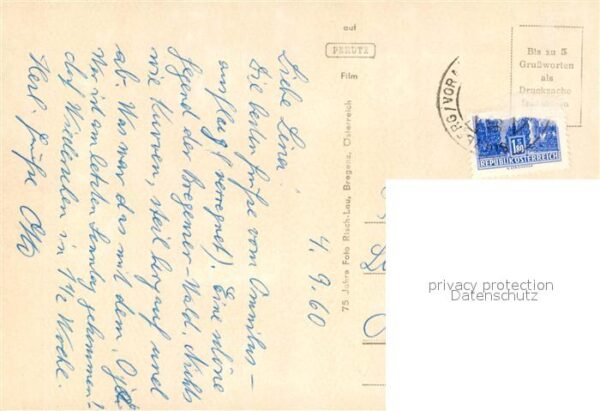 4. 9. 60
Liebe Lina!
Die besten Grüße vom Omnibus-
ausflug (verregnet). Eine schöne
Gegend der Bregenzer-Wald. Nichts
wie Kurven, steil bergauf und
ab. Was war das mit dem
Wo ist am letzten Sonntag gekommen!
Auf Wiedersehen in 1½ Woche.
Herzl. Grüße Otto
auf
PERUTZ
Film
75 Jahre Foto Risch-Lau, Bregenz, Österreich
Bis zu 5
Grußworten
als
Drucksache
1.50
REPUBLIK ÖSTERREICH
privacy protection
Datenschutz